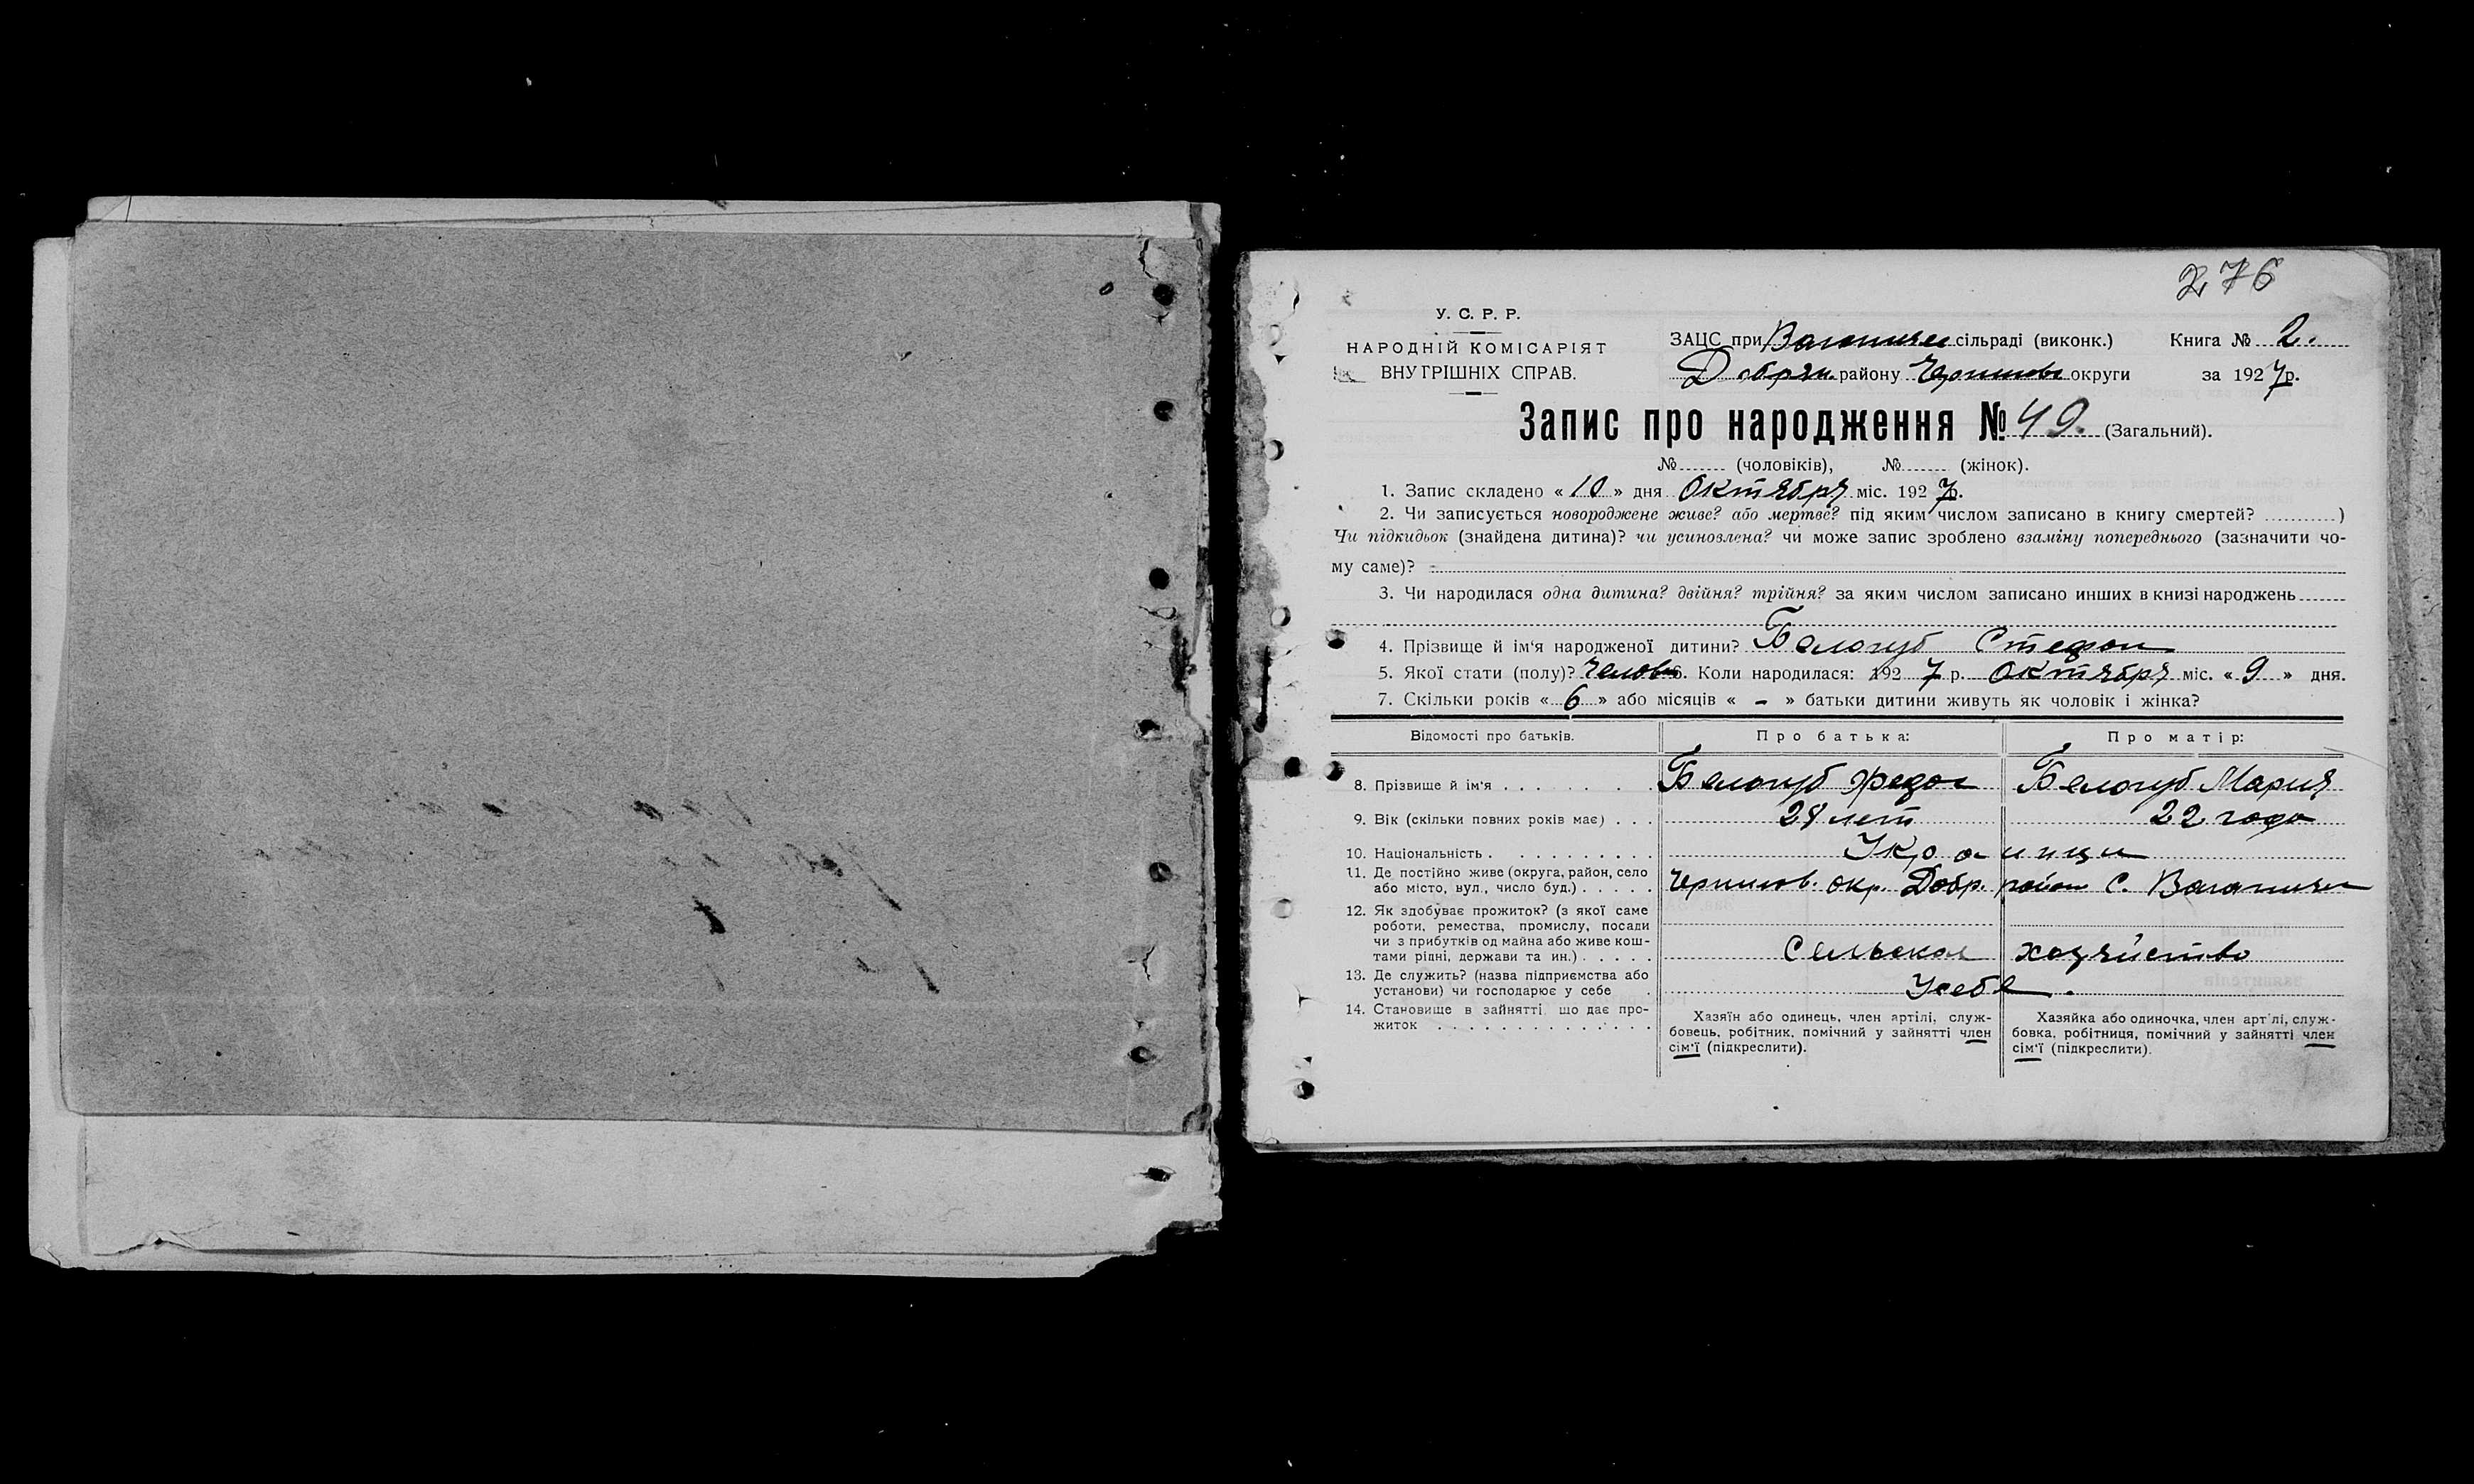 276
У. С. Р. Р.
НАРОДНІЙ КОМІСАРІЯТ
ВНУТРІШНІХ СПРАВ.
ЗАЦС при Ваганичи сільраді (виконк.) Книга № 2.
Добрян. району Чернигов округи за 1927 р.
Запис про народження № 49. (Загальний).
№ ...... (чоловіків), № ...... (жінок).
1. Запис складено « 10 » дня Октября міс. 1927 р.
2. Чи записується новороджене живе? або мертве? під яким числом записано в книгу смертей? ...........)
Чи підкидьок (знайдена дитина)? чи усиновлена? чи може запис зроблено взаміну попереднього (зазначити чо-
му саме)?
3. Чи народилася одна дитина? двійня? трійня? за яким числом записано инших в книзі народжень
4. Прізвище й ім'я народженої дитини? Белогуб Стефан
5. Якої стати (полу)? Челов 6. Коли народилася: 1927 р. Октября міс. « 9 » дня.
7. Скільки років « 6 » або місяців « - » батьки дитини живуть як чоловік і жінка?
Відомості про батьків. Про батька: Про матір:
8. Прізвище й ім'я . . . . . . . Белогуб Федос Белогуб Мария
9. Вік (скільки повних років має) . . . 28 лет 22 года
10. Національність . . . . . . . . . . Украинци
11. Де постійно живе (округа, район, село
або місто, вул., число буд.) . . . . . Чернигов. окр. Добр. район с. Ваганичи
12. Як здобуває прожиток? (з якої саме
роботи, ремества, промислу, посади
чи з прибутків од майна або живе кош-
тами рідні, держави та ин.) . . . . . Сельское хозяйство
13. Де служить? (назва підприємства або
установи) чи господарює у себе . У себе.
14. Становище в зайнятті, що дає про-
житок . . . . . . . . . . . . . .
Хазяїн або одинець, член артілі, служ-
бовець, робітник, помічний у зайнятті член
сім'ї (підкреслити).
Хазяйка або одиночка, член артілі, служ-
бовка, робітниця, помічний у зайнятті член
сім'ї (підкреслити).